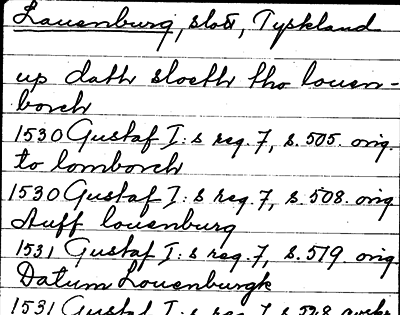 Lauenburg, slott, Tyskland
up dath sloeth tho louen-
borch
1530 Gustaf I:s reg. 7, s. 505. orig.
to lomborch
1530 Gustaf I:s reg. 7, s. 508. orig
Auff louenburg
1531 Gustaf I:s reg. 7, s. 519 orig
Datum Louenburgk
1531 Gustaf I:s reg. 7 s. 528